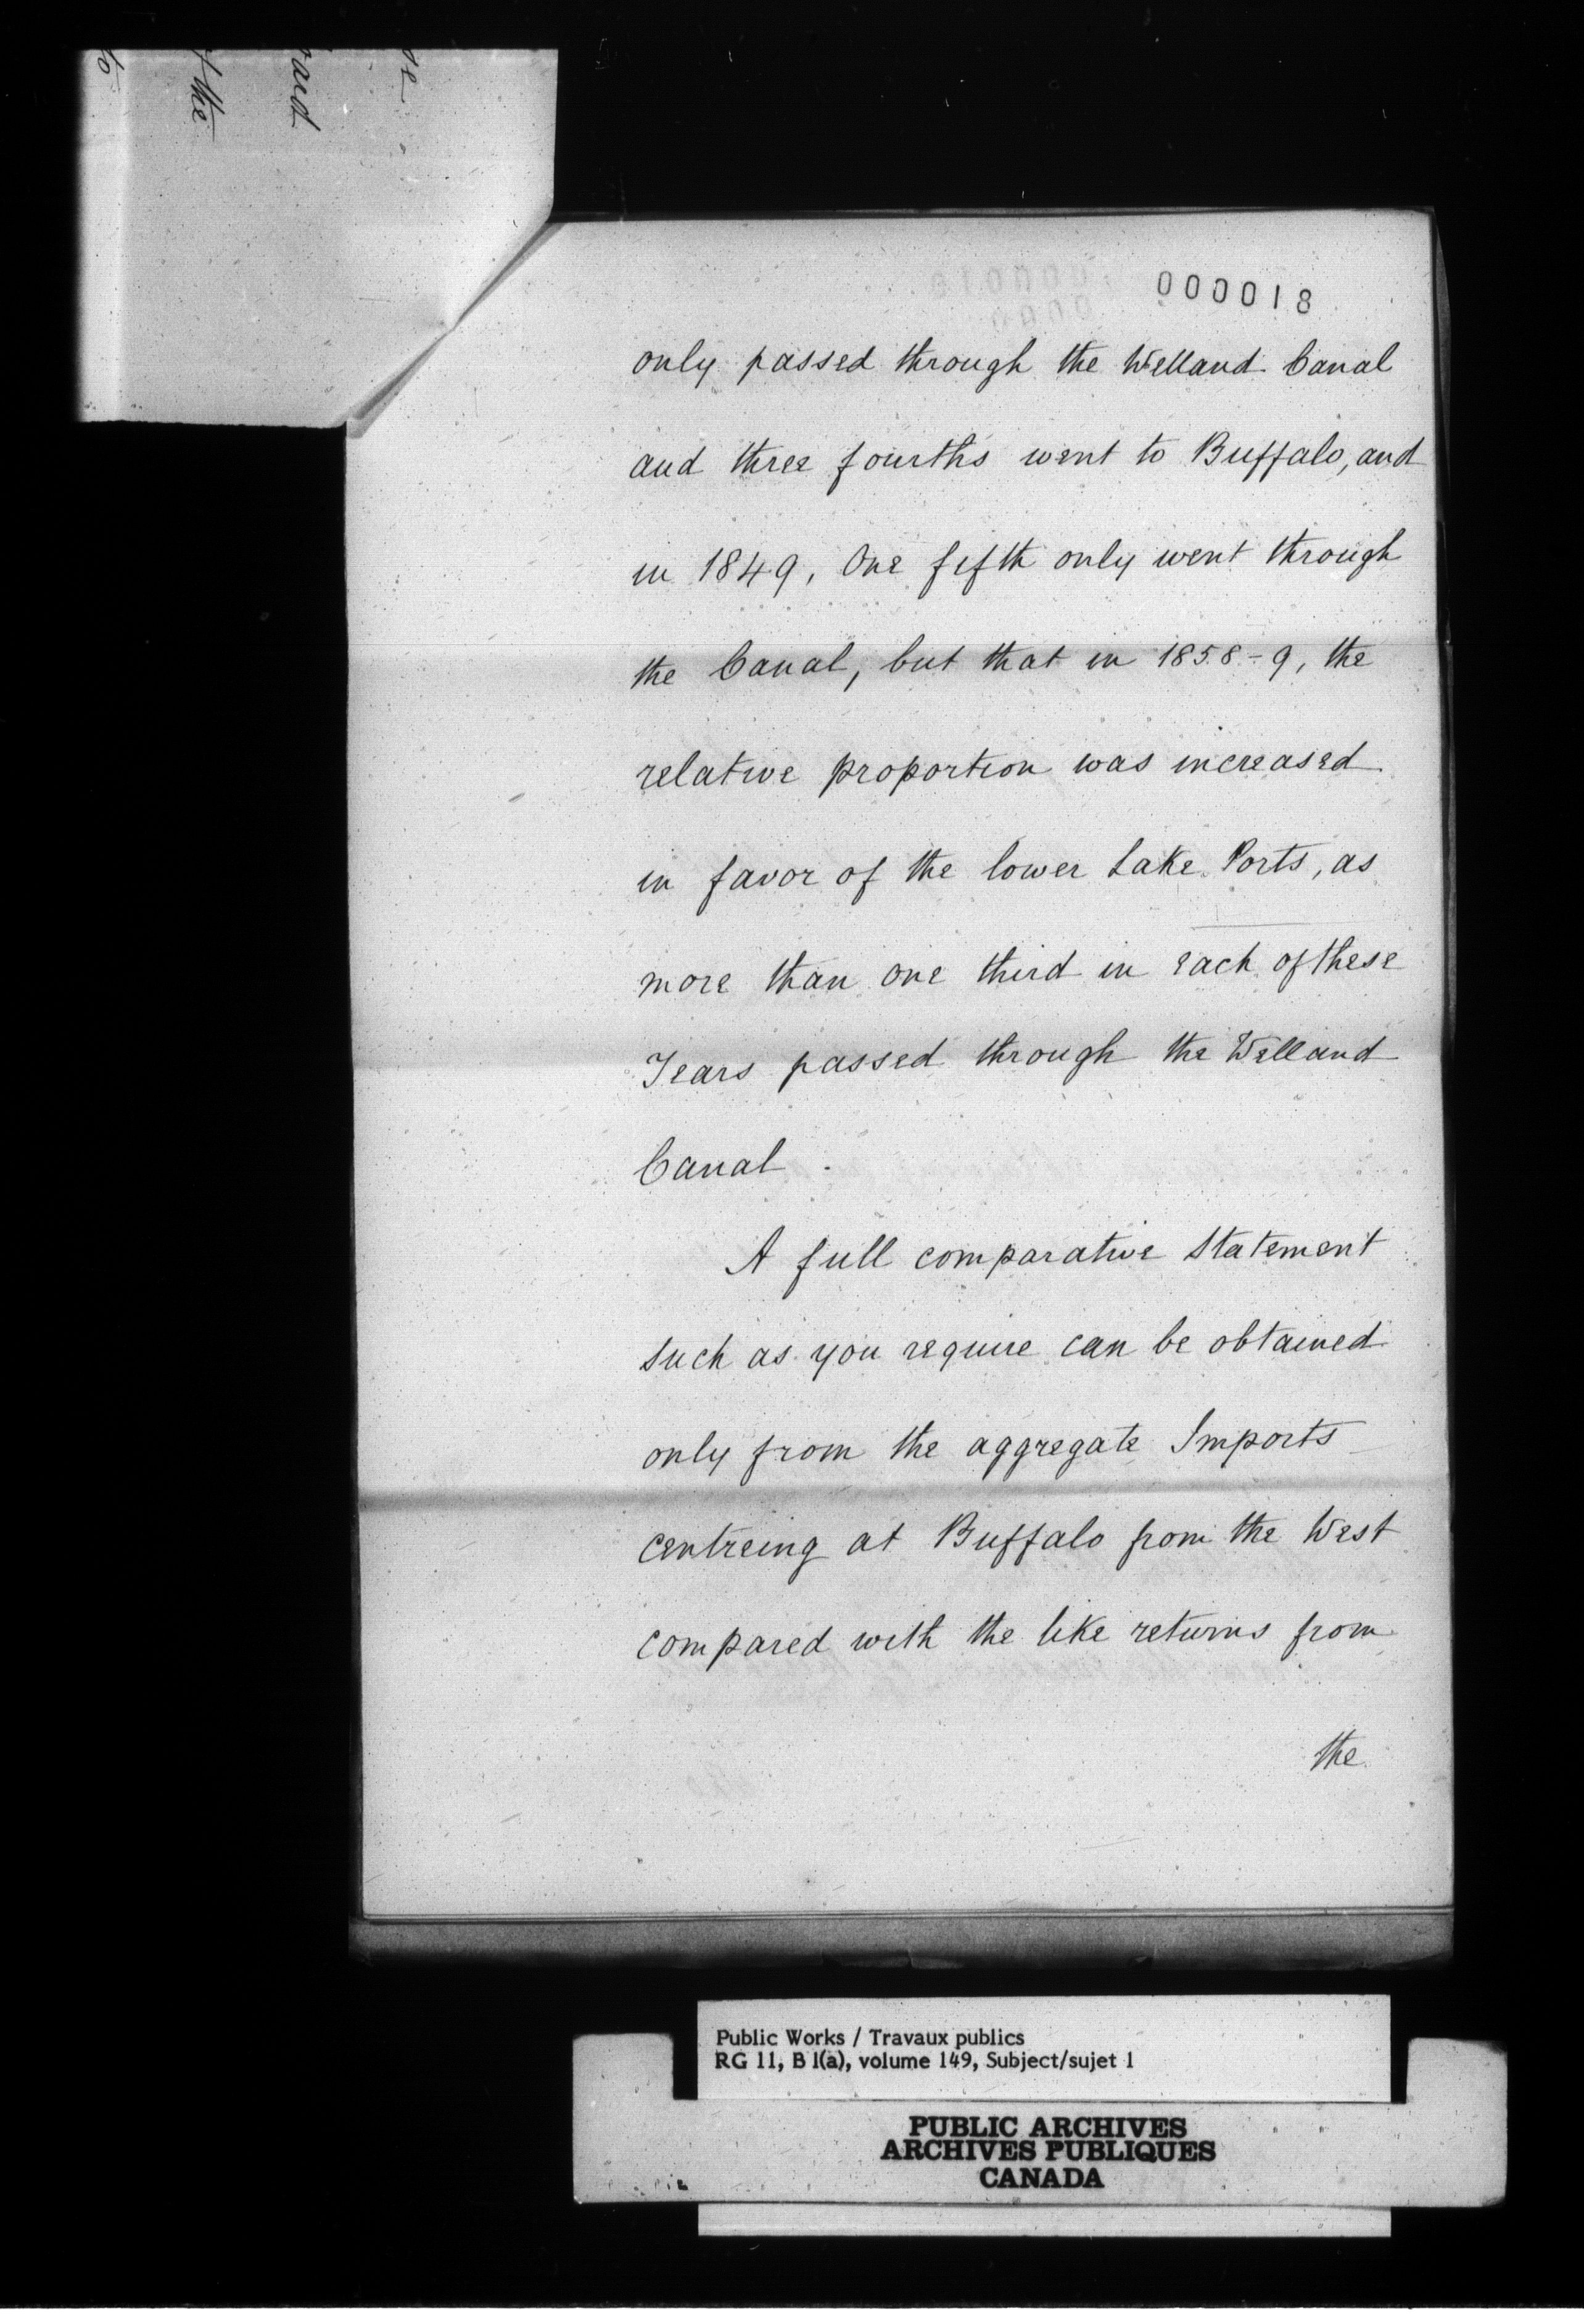 000018
only passed through the Welland Canal
and three fourths went to Buffalo, and
in 1849, One fifth only went through
the Canal, but that in 1858-9, the
relative proportion was increased
in favor of the lower Lake Ports, as
more than one third in each of these
Years passed through the Welland
Canal.
A full comparative Statement
such as you require can be obtained
only from the aggregate Imports
centreing at Buffalo from the West
compared with the like returns from
the
Public Works / Travaux publics
RG 11, B 1(a), volume 149, Subject/sujet 1
PUBLIC ARCHIVES
ARCHIVES PUBLIQUES
CANADA